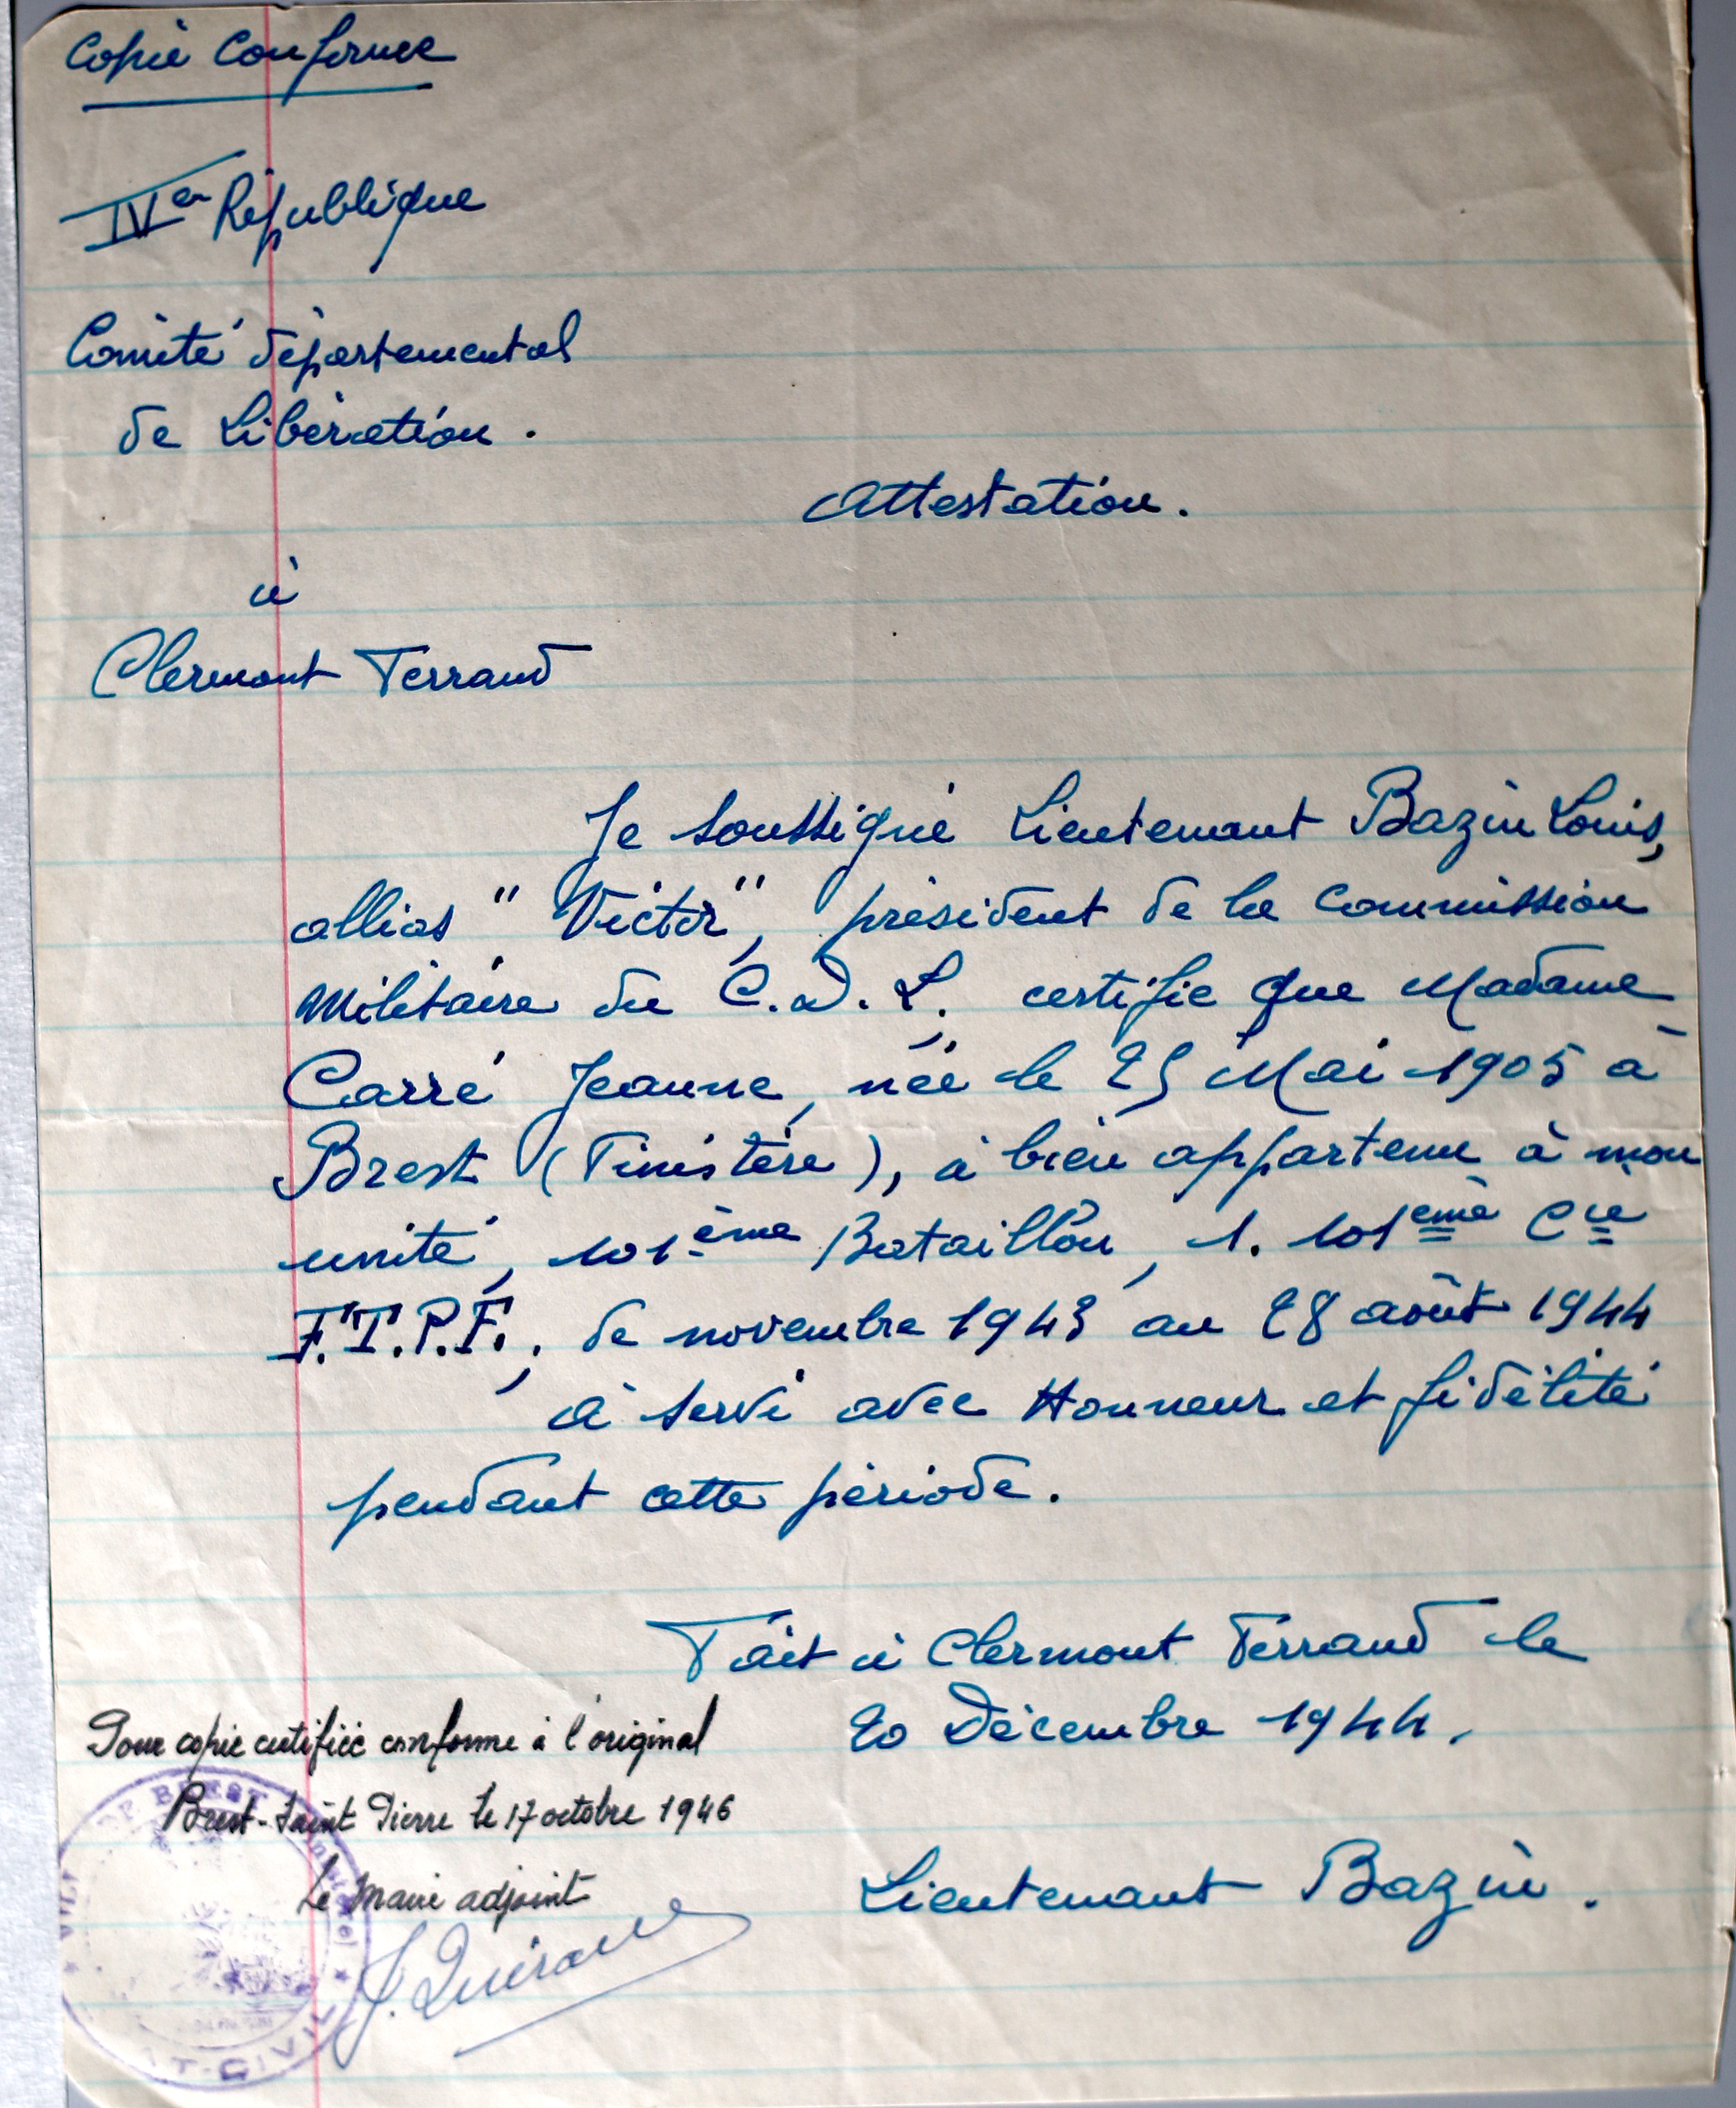 Copie Conforme
IVem République
Comité départemental
de Libération.
Attestation.
à
Clermont Ferrand
Je soussigné Lieutenant Bazin Louis,
allias "Victor", président de la Commission
Militaire du C.D.L., certifie que Madame
Carré Jeanne, née le 25 Mai 1905 à
Brest (Finistère), à bien appartenu à mon
unité, 101ème Bataillon, 1. 101ème Cie
F.T.P.F., de novembre 1943 au 28 août 1944
à servi avec Honneur et fidélité
pendant cette période.
Fait à Clermont Ferrand le
20 Décembre 1944.
Pour copie certifiée conforme à l'original
Brest-Saint Pierre le 17 octobre 1946
Le Maire adjoint
Lieutenant Bazin.
DE BREST
ÉTAT-CIVIL